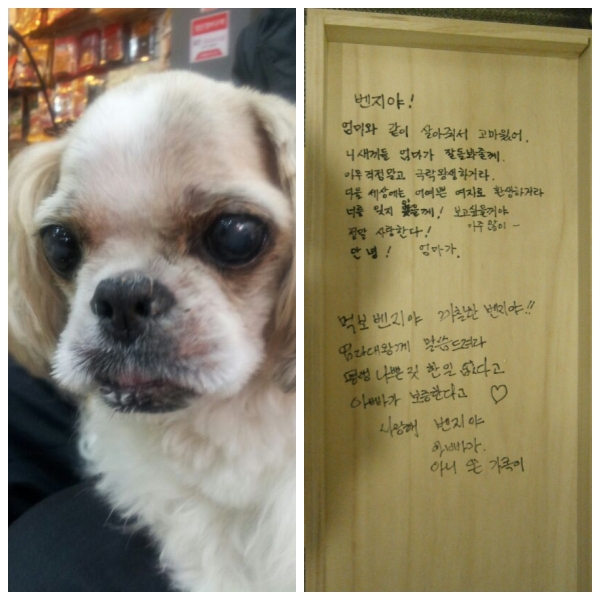 벤지야!
엄마와 같이 살아줘서 고마웠어.
니새끼들 엄마가 잘돌봐줄께.
아무걱정말고 극락왕생하거라.
다음 세상에는 어여쁜 여자로 환생하거라
너를 잊지 않을께! 보고싶을거야
정말 사랑한다! 아주 많이 ~
안녕! 엄마가.
먹보 벤지야 까칠한 벤지야!!
염라대왕께 말씀드려라
평생 나쁜짓 한일 없다고
아빠가 보증한다고 ♡
사랑해 벤지야
아빠가.
아니 온 가족이